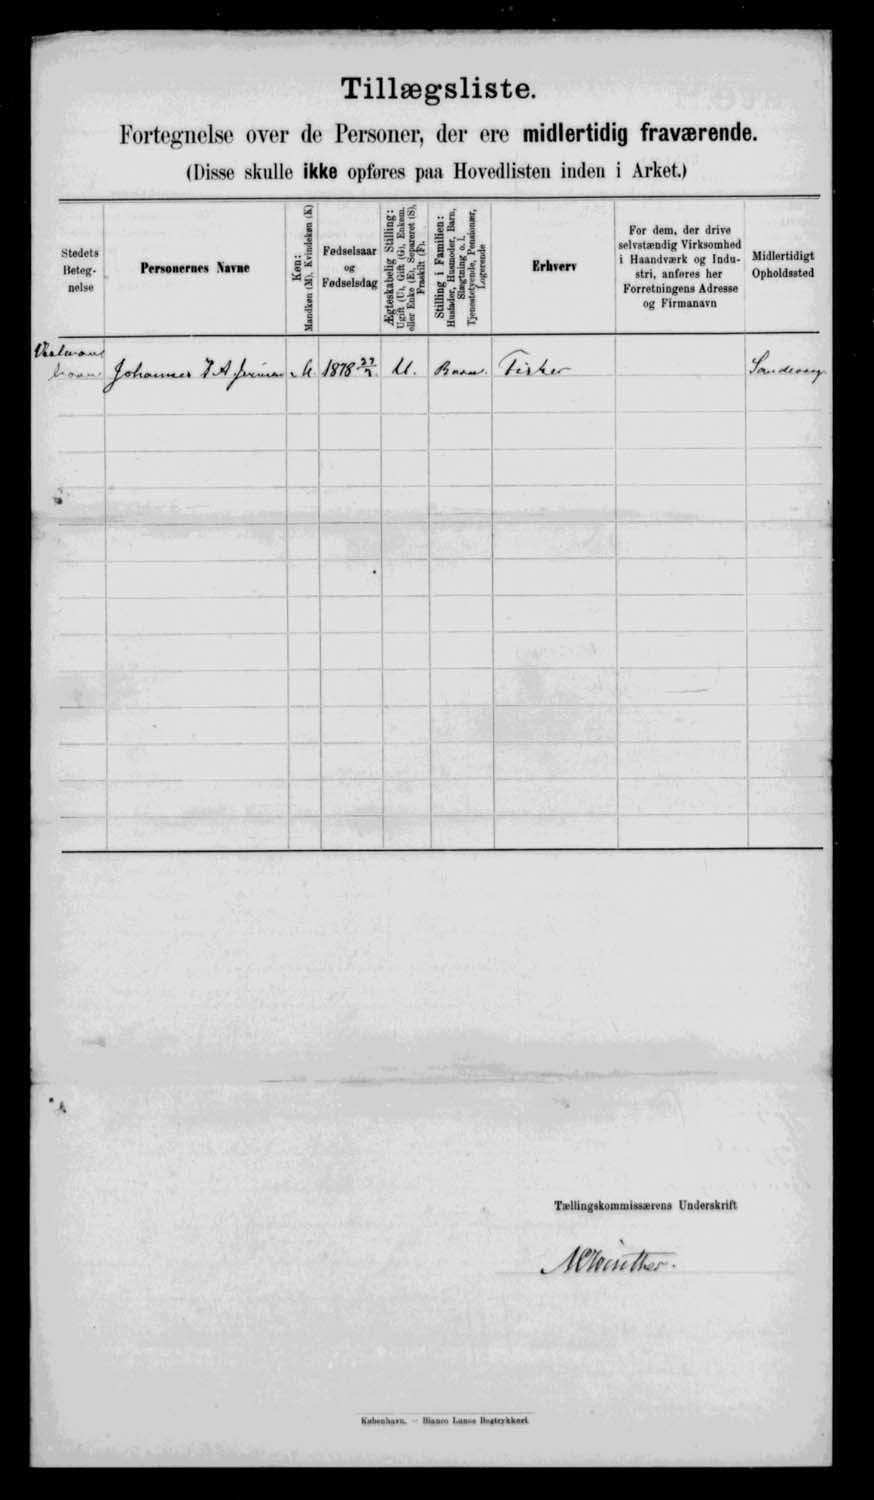 Tillægsliste.
Fortegnelse over de Personer, der ere midlertidig fraværende.
(Disse skulle ikke opføres paa Hovedlisten inden i Arket.)
Stedets
Beteg-
nelse
Personernes Navne
Køn:
Mandkøn (M), Kvindekøn (K)
Fødselsaar
og
Fødselsdag
Ægteskabelig Stilling:
Ugift (U), Gift (G), Enkem.
eller Enke (E), Separeret (S),
Fraskilt (F).
Stilling i Familien:
Husfader, Husmoder, Barn,
Slægtning o. l.
Tjenestetyende, Pensionær,
Logerende
Erhverv
For dem, der drive
selvstændig Virksomhed
i Haandværk og Indu-
stri, anføres her
Forretningens Adresse
og Firmanavn
Midlertidigt
Opholdssted
Johannes M. 1878 27/7 U. Barn. Fisker
Tællingskommissærens Underskrift
Winther.
København. — Bianco Lunos Bogtrykkeri